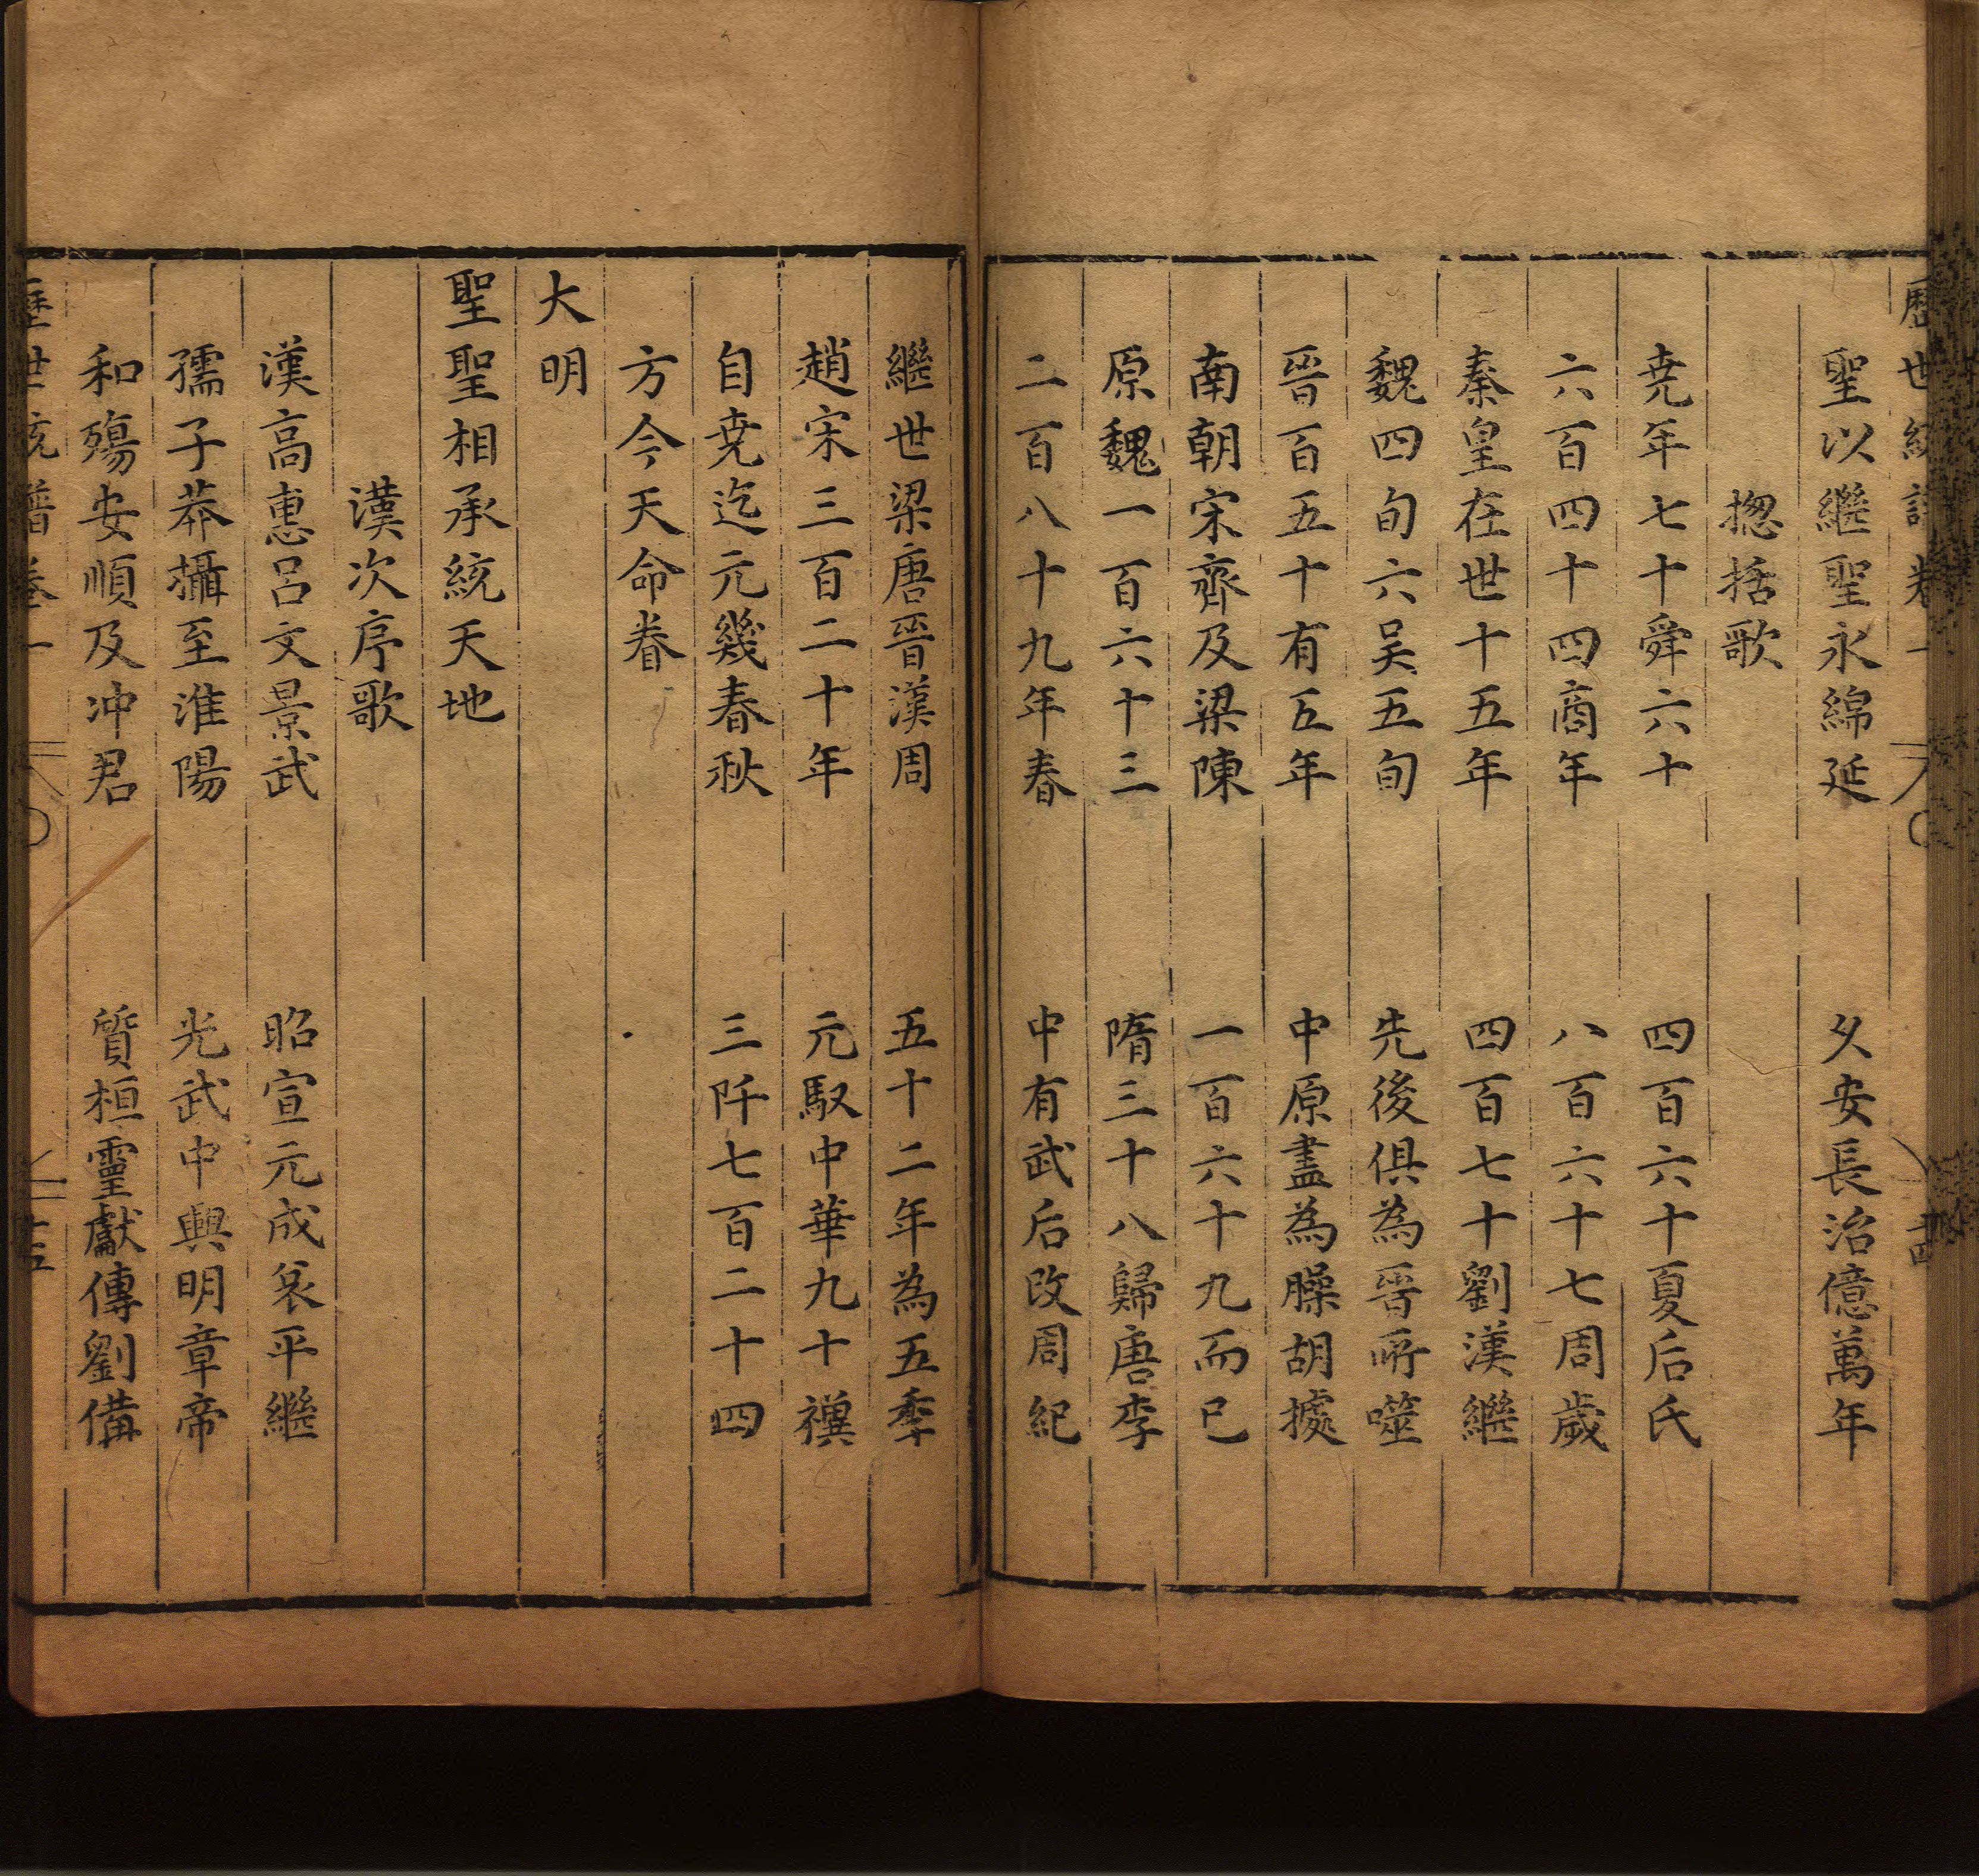 歷世統譜卷一 四
聖以繼聖永綿延 久安長治億萬年
揔括歌
堯年七十舜六十 四百六十夏后氏
六百四十四商年 八百六十七周歲
秦皇在世十五年 四百七十劉漢繼
魏四旬六吴五旬 先後俱為晉所噬
晉百五十有五年 中原盡為臊胡據
南朝宋齊及梁陳 一百六十九而已
原魏一百六十三 隋三十八歸唐李
二百八十九年春 中有武后改周紀
繼世梁唐晉漢周 五十二年為五季
趙宋三百二十年 元馭中華九十禩
自堯迄元幾春秋 三阡七百二十四
方今天命眷
大明
聖聖相承統天地
漢次序歌
漢高惠呂文景武 昭宣元成哀平繼
孺子莽攝至淮陽 光武中興明章帝
和殤安順及冲君 質桓靈獻傳劉備
歷世統譜卷一 五